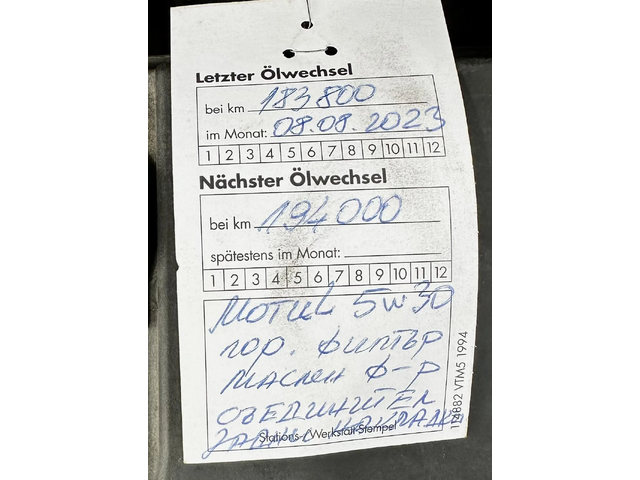 Letzter Ölwechsel
bei km 183800
im Monat: 08.08.2023
1 2 3 4 5 6 7 8 9 10 11 12
Nächster Ölwechsel
bei km 194000
spätestens im Monat:
1 2 3 4 5 6 7 8 9 10 11 12
Мотul 5w30
гор. филтър
маслен ф-р
обединител
задни накладки
Stations-/Werkstatt-Stempel
114882 VTM5 1994